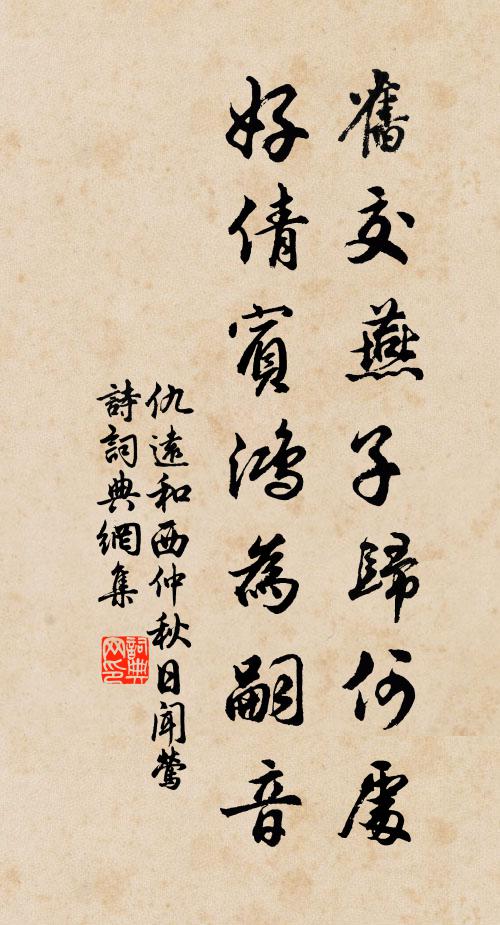 舊交燕子歸何處
好倩賓鴻為嗣音
仇遠和西仲秋日聞鶯
詩詞典網集
詞典网印